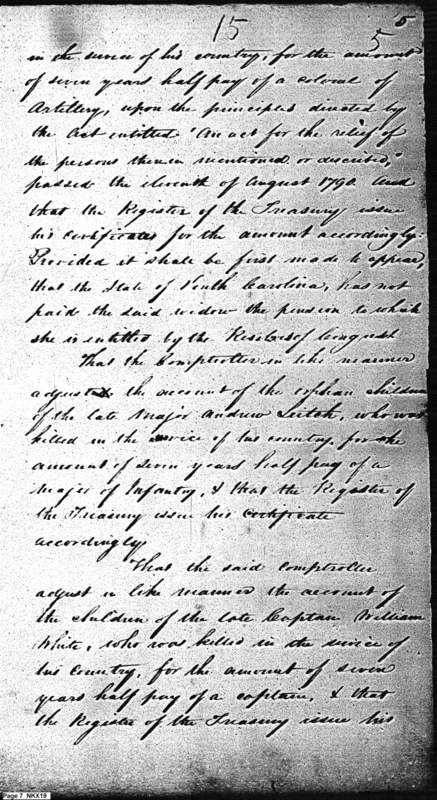 15
5
5
in the service of his country, for the amount
of seven years half pay of a colonel of
Artillery, upon the principles directed by
the Act entitled "An act for the relief of
the persons therein mentioned or described,"
passed the eleventh of August 1790. And
that the Register of the Treasury issue
his certificates for the amount accordingly:
Provided it shall be first made to appear,
that the State of South Carolina, has not
paid the said widow the pension to which
she is entitled by the Resolves of Congress
That the Comptroller in like manner
adjust the account of the orphan children
of the late Major Andrew Leitch, who was
killed in the service of his country, for the
amount of seven years half pay of a
Major of Infantry, & that the Register of
the Treasury issue his certificate
accordingly
That the said comptroller
adjust in like manner the account of
the children of the late Captain William
White, who was killed in the service of
his Country, for the amount of seven
years half pay of a captain, & that
the Register of the Treasury issue his
Page 7 NKX19